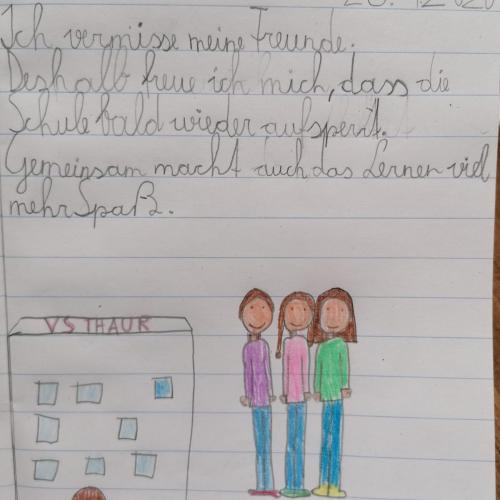 Ich vermisse meine Freunde.
Deshalb freue ich mich, dass die
Schule bald wieder aufsperrt.
Gemeinsam macht auch das Lernen viel
mehr Spaß.
VS THAUR